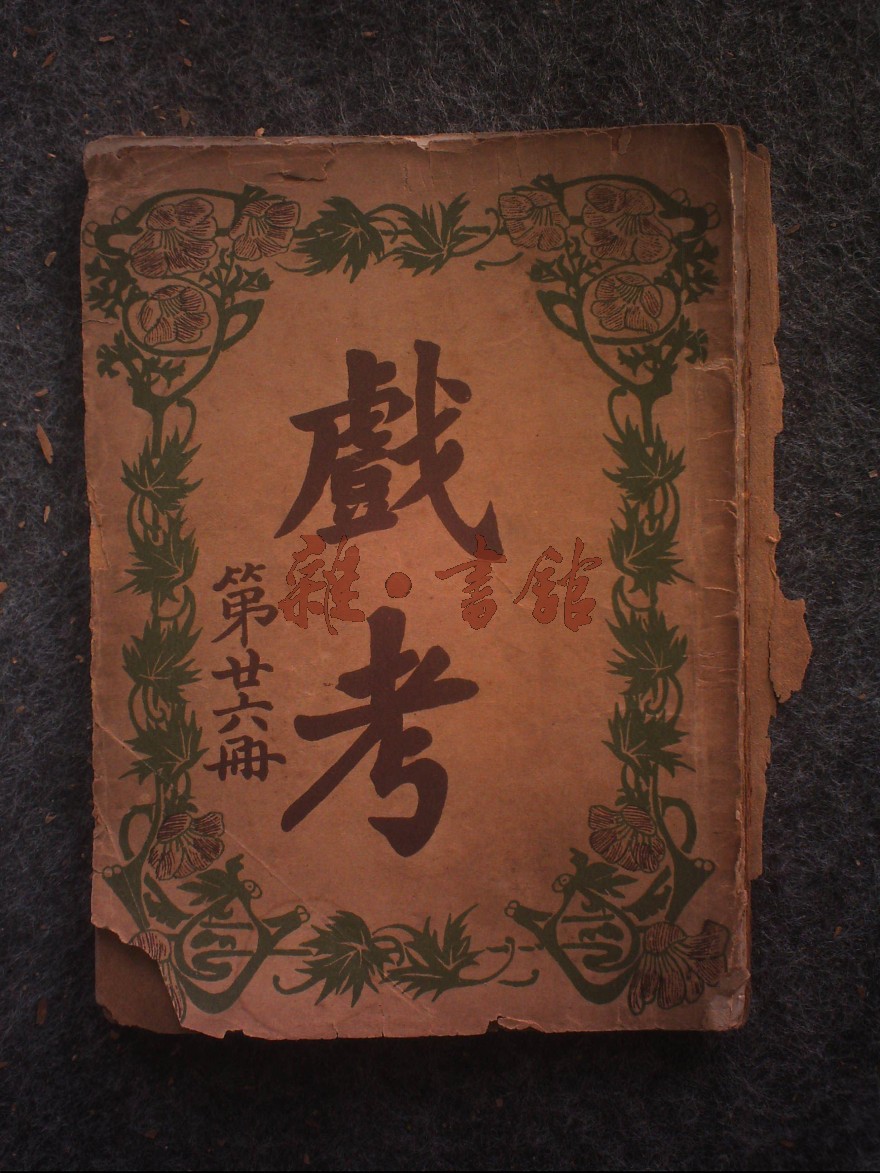 戲考
第廿六冊
雜·書館